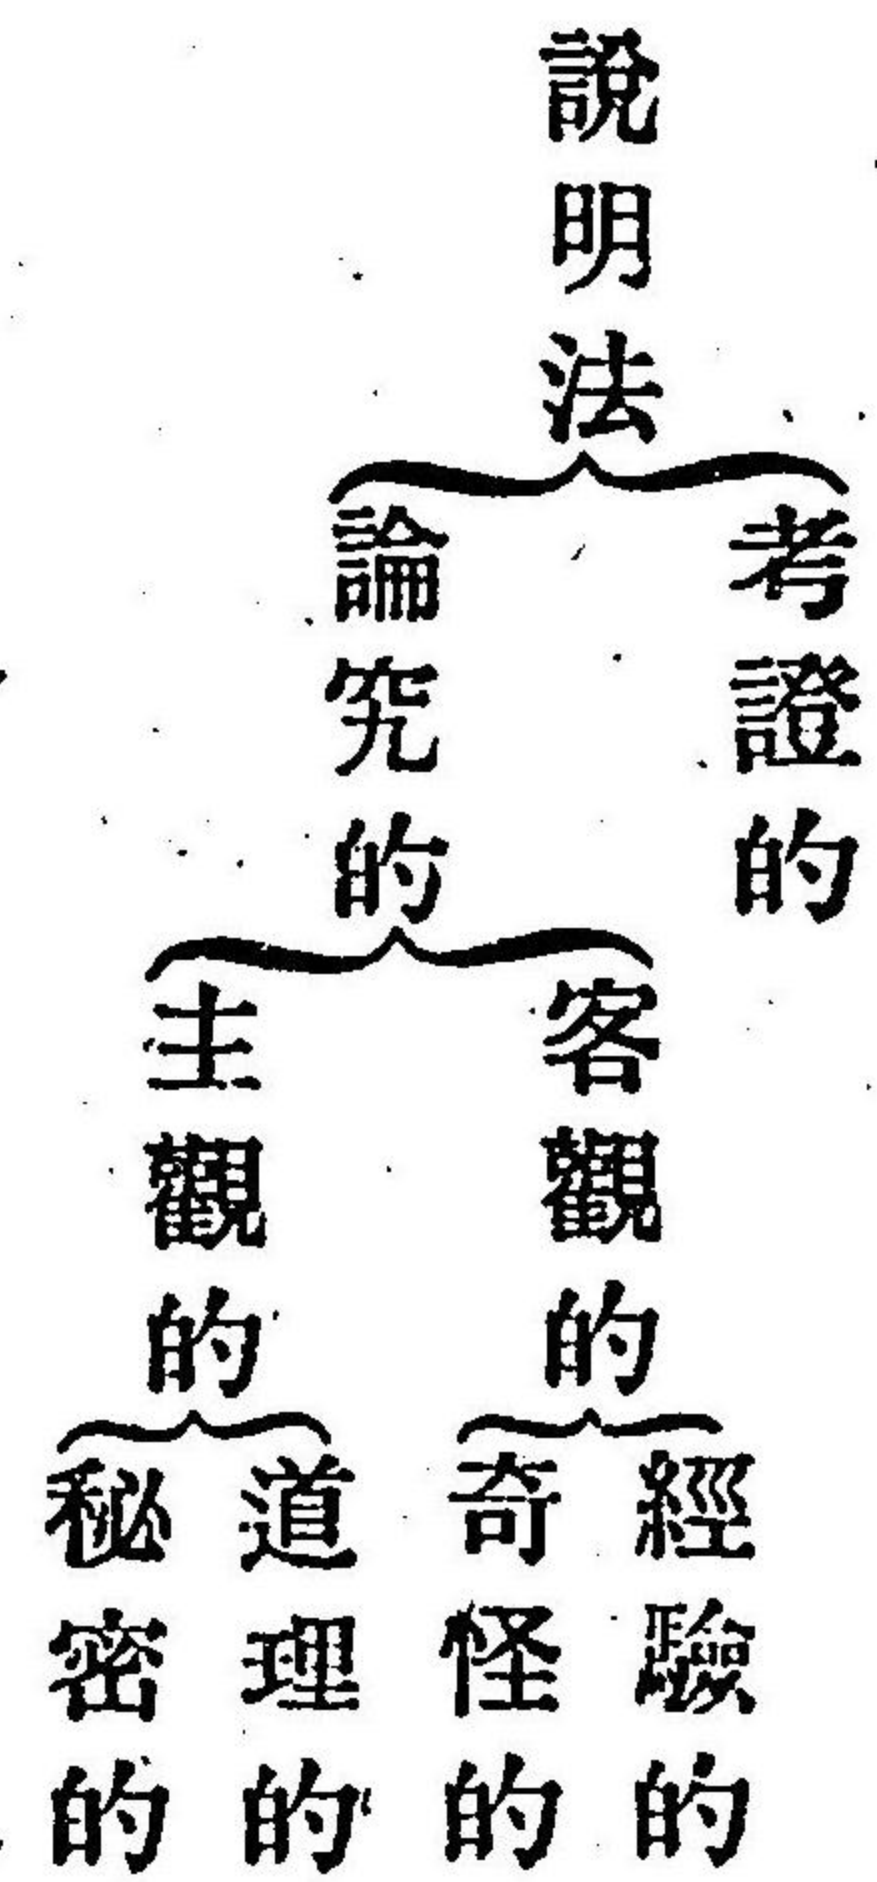 說明法
考證的
論究的
客觀的
主觀的
經驗的
奇怪的
道理的
秘密的